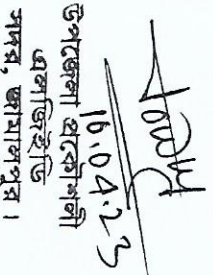 16.04.23
উপজেলা প্রকৌশলী
এলজিইডি
সদর, জামালপুর।